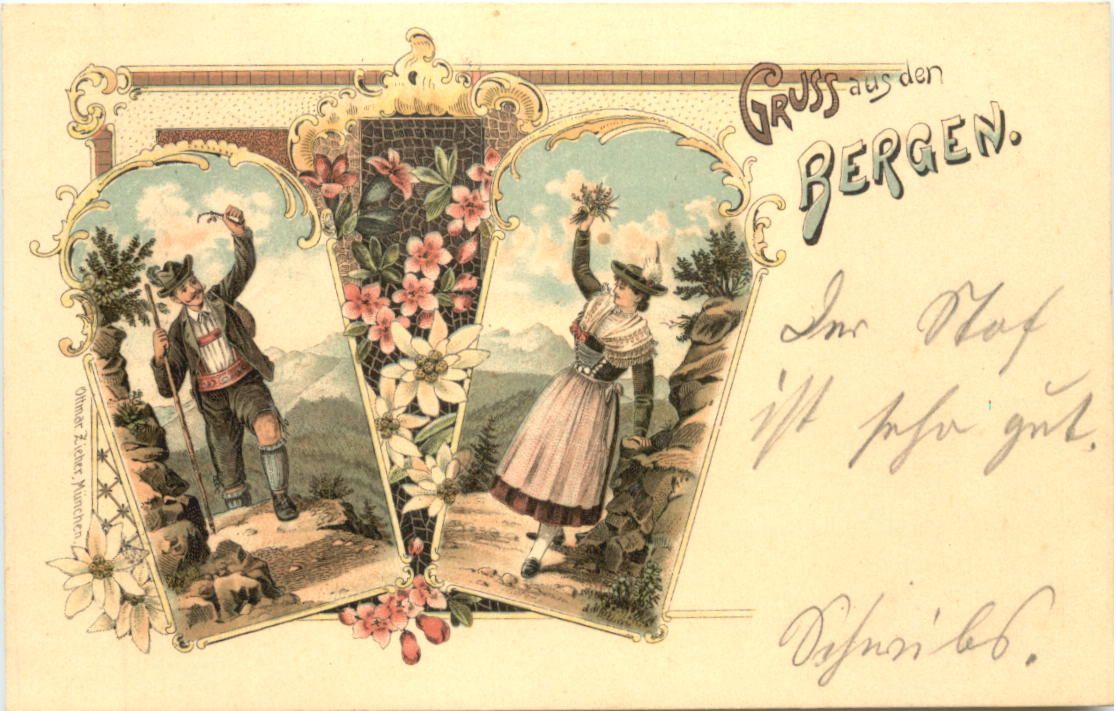 GRUSS aus den
BERGEN.
Der Stof
ist sehr gut.
Schwibs.
Ottmar Zieher, München.